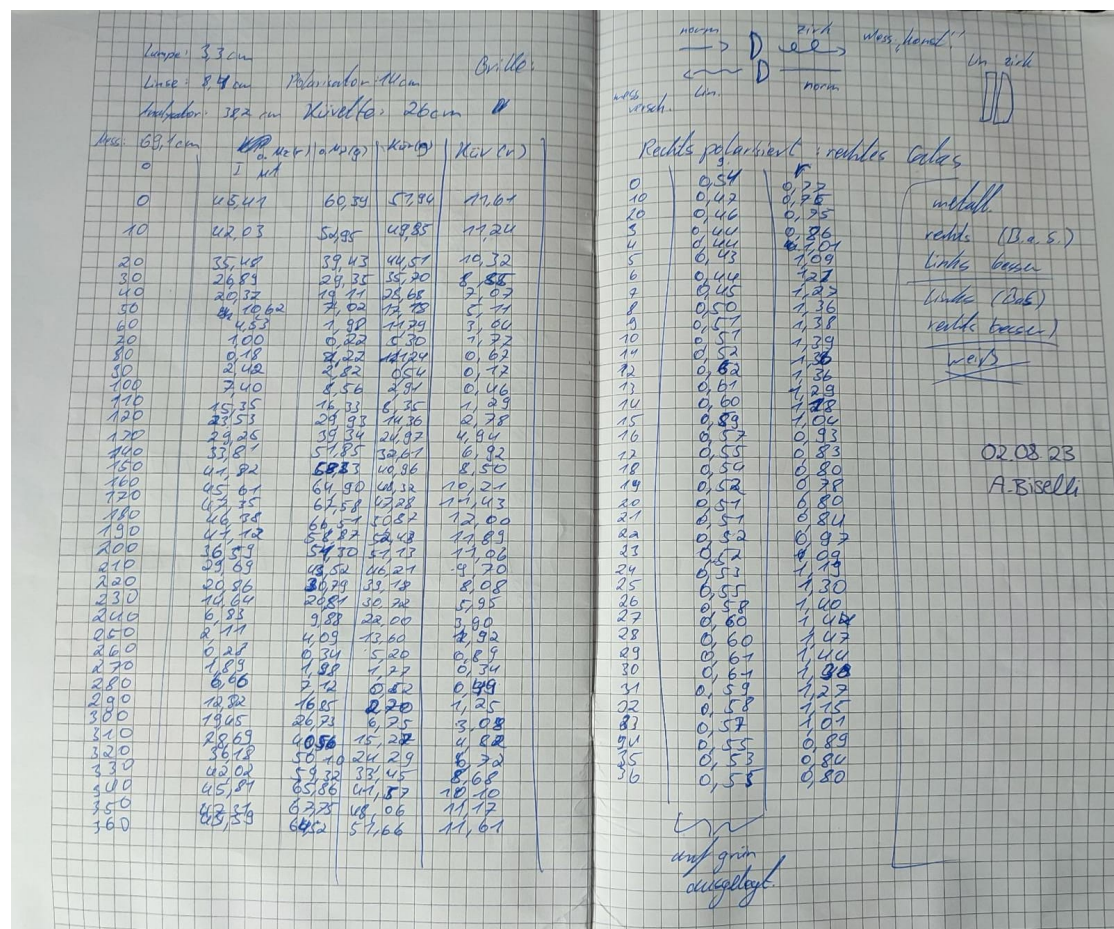 Lampe: 3,3 cm
Linse: 8,4 cm Polarisator: 14 cm Brille:
Analysator: 38,2 cm Küvette: 26 cm
Mess: 69,1 cm o. Mz(r) o. Mz(g) Küv(g) Küv(r)
0 I µA
0 45,41 60,39 51,94 11,61
10 42,03 52,95 49,85 11,24
20 35,48 39,43 44,51 10,32
30 26,89 29,35 35,70 8,85
40 20,32 19,11 25,68 7,07
50 10,62 7,02 17,13 5,11
60 4,53 1,98 11,79 3,04
70 1,00 0,22 5,30 1,77
80 0,18 2,27 1,24 0,67
90 2,42 2,82 0,54 0,17
100 7,40 8,56 2,91 0,46
110 15,35 16,33 8,35 1,29
120 23,53 29,93 14,36 2,78
130 29,25 39,34 24,97 4,94
140 33,81 51,85 32,61 6,92
150 41,82 40,96 8,50
160 45,61 64,90 10,21
170 47,35 67,58 47,28 11,43
180 46,38 66,51 50,87 12,00
190 41,12 58,87 52,48 11,89
200 36,59 51,30 51,13 11,06
210 29,69 43,52 46,21 9,70
220 20,86 30,79 39,18 8,08
230 14,64 20,81 30,72 5,95
240 6,83 9,88 22,00 3,90
250 2,11 4,09 13,60 1,92
260 0,28 0,34 5,20 0,89
270 1,89 1,98 1,77 0,34
280 6,66 7,12 0,52 0,49
290 12,82 16,85 2,70 1,25
300 19,45 26,73 6,75 3,08
310 28,69 40,56 15,27 4,82
320 36,18 50,10 24,29 6,72
330 42,02 59,32 33,45 8,68
340 45,81 65,86 41,57 10,10
350 47,31 67,75 48,06 11,17
360 45,59 64,52 51,66 11,61
norm zirk Mess „konst.“
lin. norm
lin zirk
mess versch.
Rechts polarisiert: rechtes Glas
g. r
0 0,54 0,77
10 0,47 0,76
20 0,46 0,75
3 0,44 0,86
4 0,44 1,01
5 0,43 1,09
6 0,44 1,21
7 0,45 1,27
8 0,50 1,36
9 0,51 1,38
10 0,51 1,39
11 0,52 1,36
12 0,62 1,36
13 0,61 1,29
14 0,60 1,18
15 0,59 1,04
16 0,57 0,93
17 0,55 0,83
18 0,54 0,80
19 0,52 0,78
20 0,51 0,80
21 0,51 0,84
22 0,52 0,97
23 0,52 1,09
24 0,53 1,19
25 0,55 1,30
26 0,58 1,40
27 0,60 1,44
28 0,60 1,47
29 0,61 1,44
30 0,61
31 0,59 1,27
32 0,58 1,15
33 0,57 1,01
34 0,55 0,89
35 0,53 0,84
36 0,55 0,80
auf grün
ausgelegt.
metall.
rechts (B.a.S.)
links besser
links (BaS)
rechts besser)
weiß
02.08.23
A.Biselli